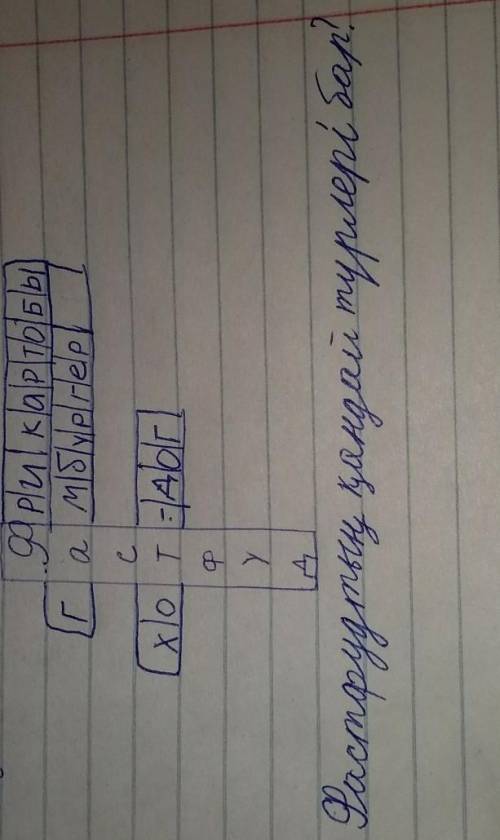 ФРИ КАРТОБЫ
ГАМБУРГЕР
С
ХОТ-ДОГ
Ф
У
Д
Фастфудтың қандай түрлері бар?